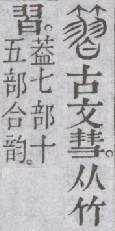 𥱵古文彗。从竹
習。
葢七部十
五部合韵。